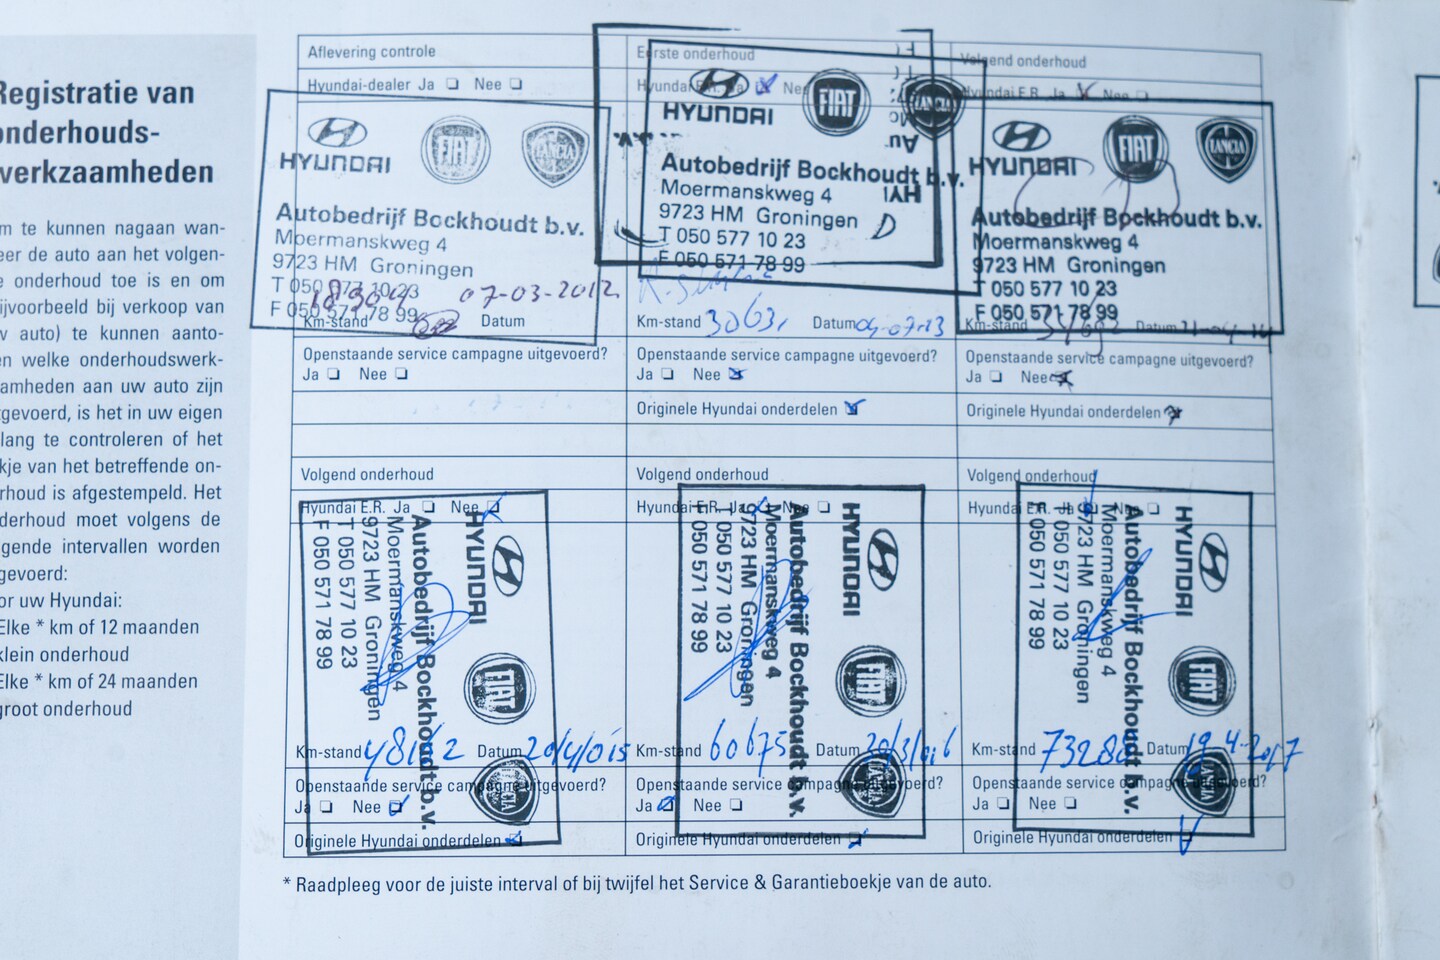 Registratie van
onderhouds-
werkzaamheden
m te kunnen nagaan wan-
eer de auto aan het volgen-
e onderhoud toe is en om
ijvoorbeeld bij verkoop van
w auto) te kunnen aanto-
en welke onderhoudswerk-
aamheden aan uw auto zijn
tgevoerd, is het in uw eigen
lang te controleren of het
kje van het betreffende on-
rhoud is afgestempeld. Het
derhoud moet volgens de
lgende intervallen worden
gevoerd:
or uw Hyundai:
Elke * km of 12 maanden
klein onderhoud
Elke * km of 24 maanden
groot onderhoud
Aflevering controle
Hyundai-dealer Ja Nee
HYUNDAI FIAT LANCIA
Autobedrijf Bockhoudt b.v.
Moermanskweg 4
9723 HM Groningen
T 050 577 10 23
F 050 571 78 99
07-03-2012
Km-stand Datum
Openstaande service campagne uitgevoerd?
Ja Nee
Eerste onderhoud
Hyundai E.R. Ja Nee
HYUNDAI FIAT LANCIA
Autobedrijf Bockhoudt b.v.
Moermanskweg 4
9723 HM Groningen
T 050 577 10 23
F 050 571 78 99
Km-stand Datum 04-07-13
Openstaande service campagne uitgevoerd?
Ja Nee
Originele Hyundai onderdelen
Volgend onderhoud
Hyundai E.R. Ja Nee
HYUNDAI FIAT LANCIA
Autobedrijf Bockhoudt b.v.
Moermanskweg 4
9723 HM Groningen
T 050 577 10 23
F 050 571 78 99
Km-stand Datum
Openstaande service campagne uitgevoerd?
Ja Nee
Originele Hyundai onderdelen
Volgend onderhoud
Hyundai E.R. Ja Nee
HYUNDAI FIAT LANCIA
Autobedrijf Bockhoudt b.v.
Moermanskweg 4
9723 HM Groningen
T 050 577 10 23
F 050 571 78 99
Km-stand Datum 20/4/015
Openstaande service campagne uitgevoerd?
Ja Nee
Originele Hyundai onderdelen
Volgend onderhoud
Hyundai E.R. Ja Nee
HYUNDAI FIAT LANCIA
Autobedrijf Bockhoudt b.v.
Moermanskweg 4
9723 HM Groningen
T 050 577 10 23
F 050 571 78 99
Km-stand 60675 Datum
Openstaande service campagne uitgevoerd?
Ja Nee
Originele Hyundai onderdelen
Volgend onderhoud
Hyundai E.R. Ja Nee
HYUNDAI FIAT LANCIA
Autobedrijf Bockhoudt b.v.
Moermanskweg 4
9723 HM Groningen
T 050 577 10 23
F 050 571 78 99
Km-stand Datum 19-4-2017
Openstaande service campagne uitgevoerd?
Ja Nee
Originele Hyundai onderdelen
* Raadpleeg voor de juiste interval of bij twijfel het Service & Garantieboekje van de auto.